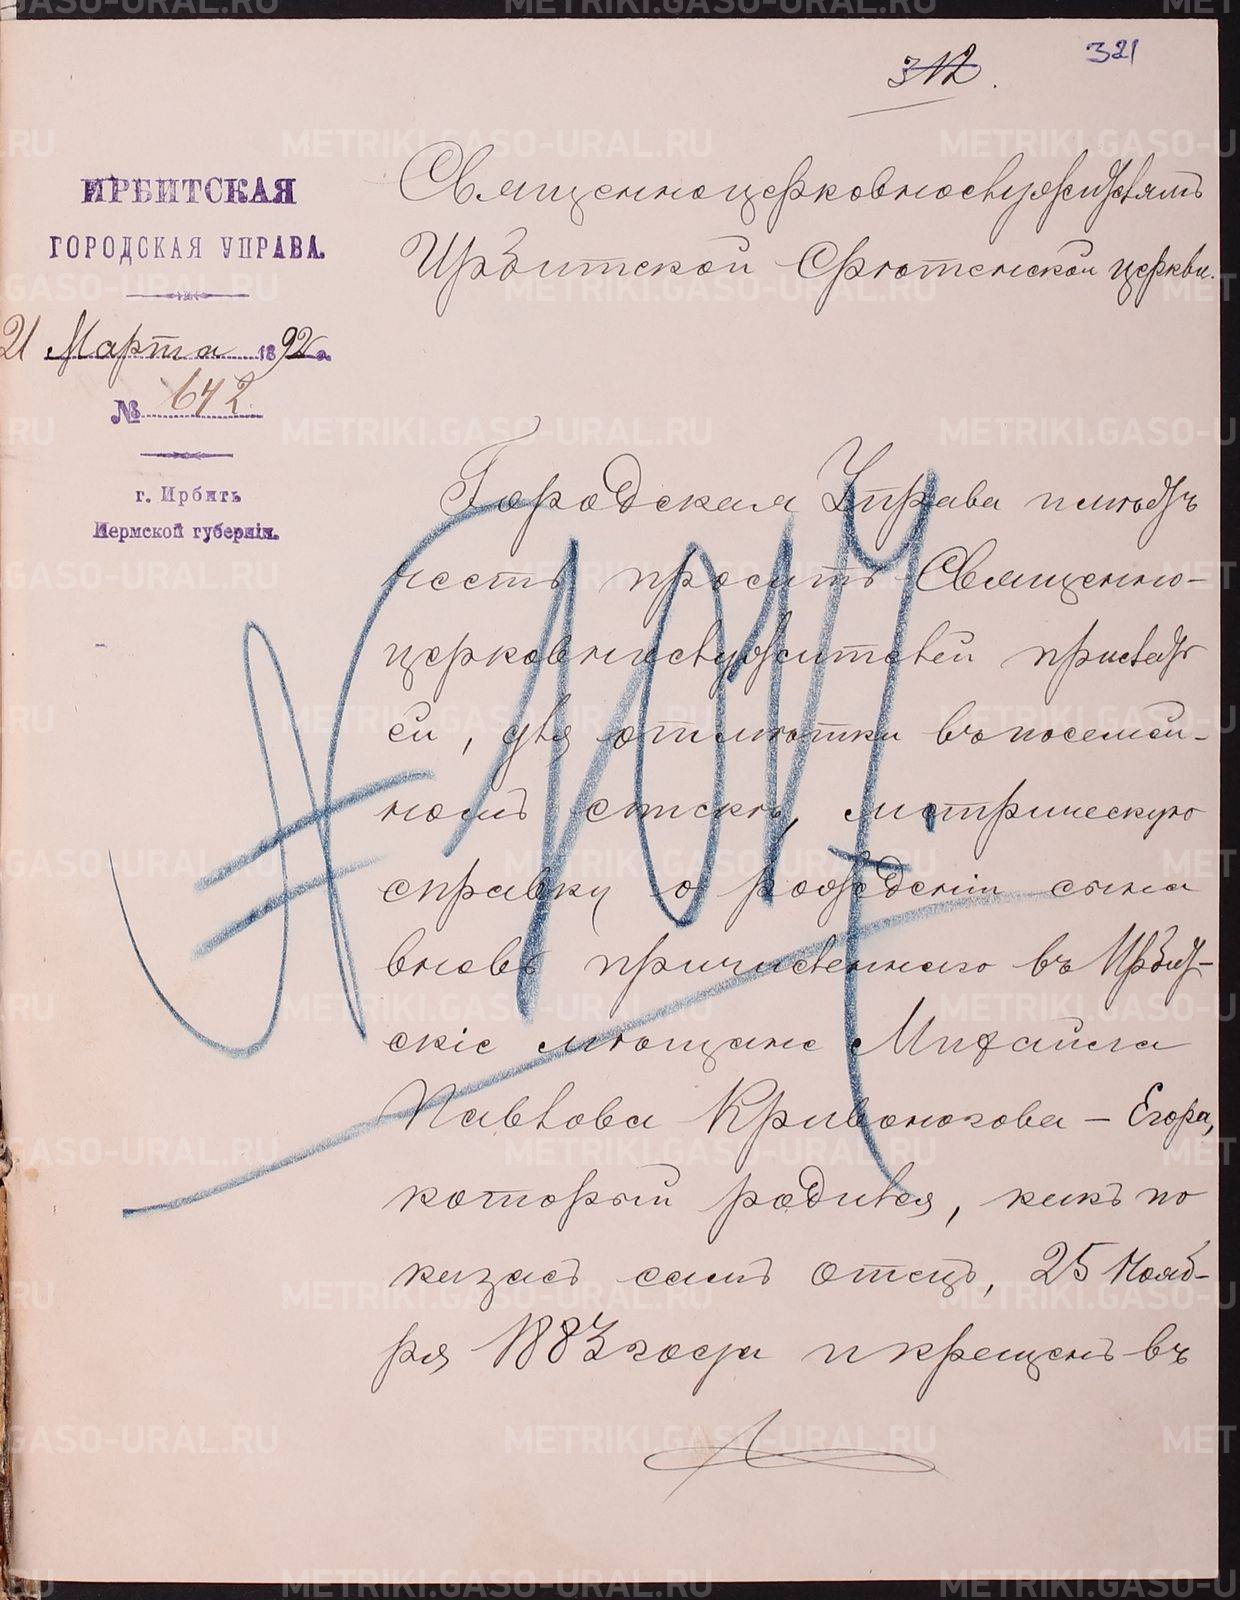 312.
321
ИРБИТСКАЯ
ГОРОДСКАЯ УПРАВА.
21 Марта 1892 г.
№ 642
г. Ирбитъ
Пермской губерніи.
Священноцерковнослужителямъ
Ирбитской Срѣтенской церкви.
Городская Управа имѣетъ
честь проситъ Священно-
церковнослужителей прислать
ей, для отмѣтки въ посемей-
номъ спискѣ, метрическую
справку о рожденіи сына
вновь причисленнаго въ Ирбит-
скіе мѣщане Михаила
Павлова Кривоногова - Егора,
который родился, какъ по
казалъ самъ отецъ, 25 Нояб-
ря 1883 года и крещенъ въ
METRIKI.GASO-URAL.RU